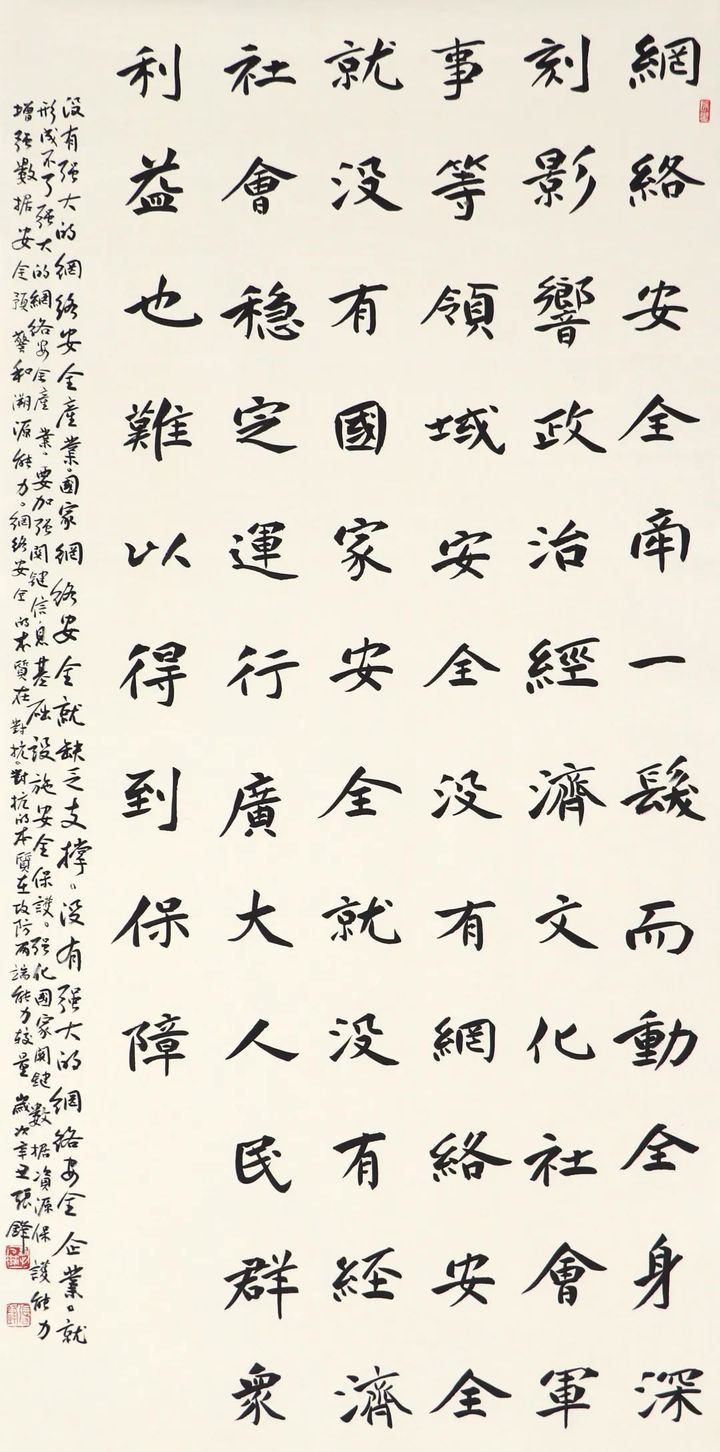 網絡安全南一髮而動全身深
刻影響政治經濟文化社會軍
事等領域安全没有網絡安全
就没有國家安全就没有经濟
社會穩定運行廣大人民群衆
利益也難以得到保障
没有强大的網络安全產業。國家網络安全就缺乏支撑。没有强大的網络安全企業。就
形成不了强大的網络安全產業。要加强関键信息基础設施安全保護。强化國家関键数據資源保護能力
增强数据安全预警和溯源能力。網络安全的本質在對抗。對抗的本質在攻防两端能力较量 歲次辛丑張鐸